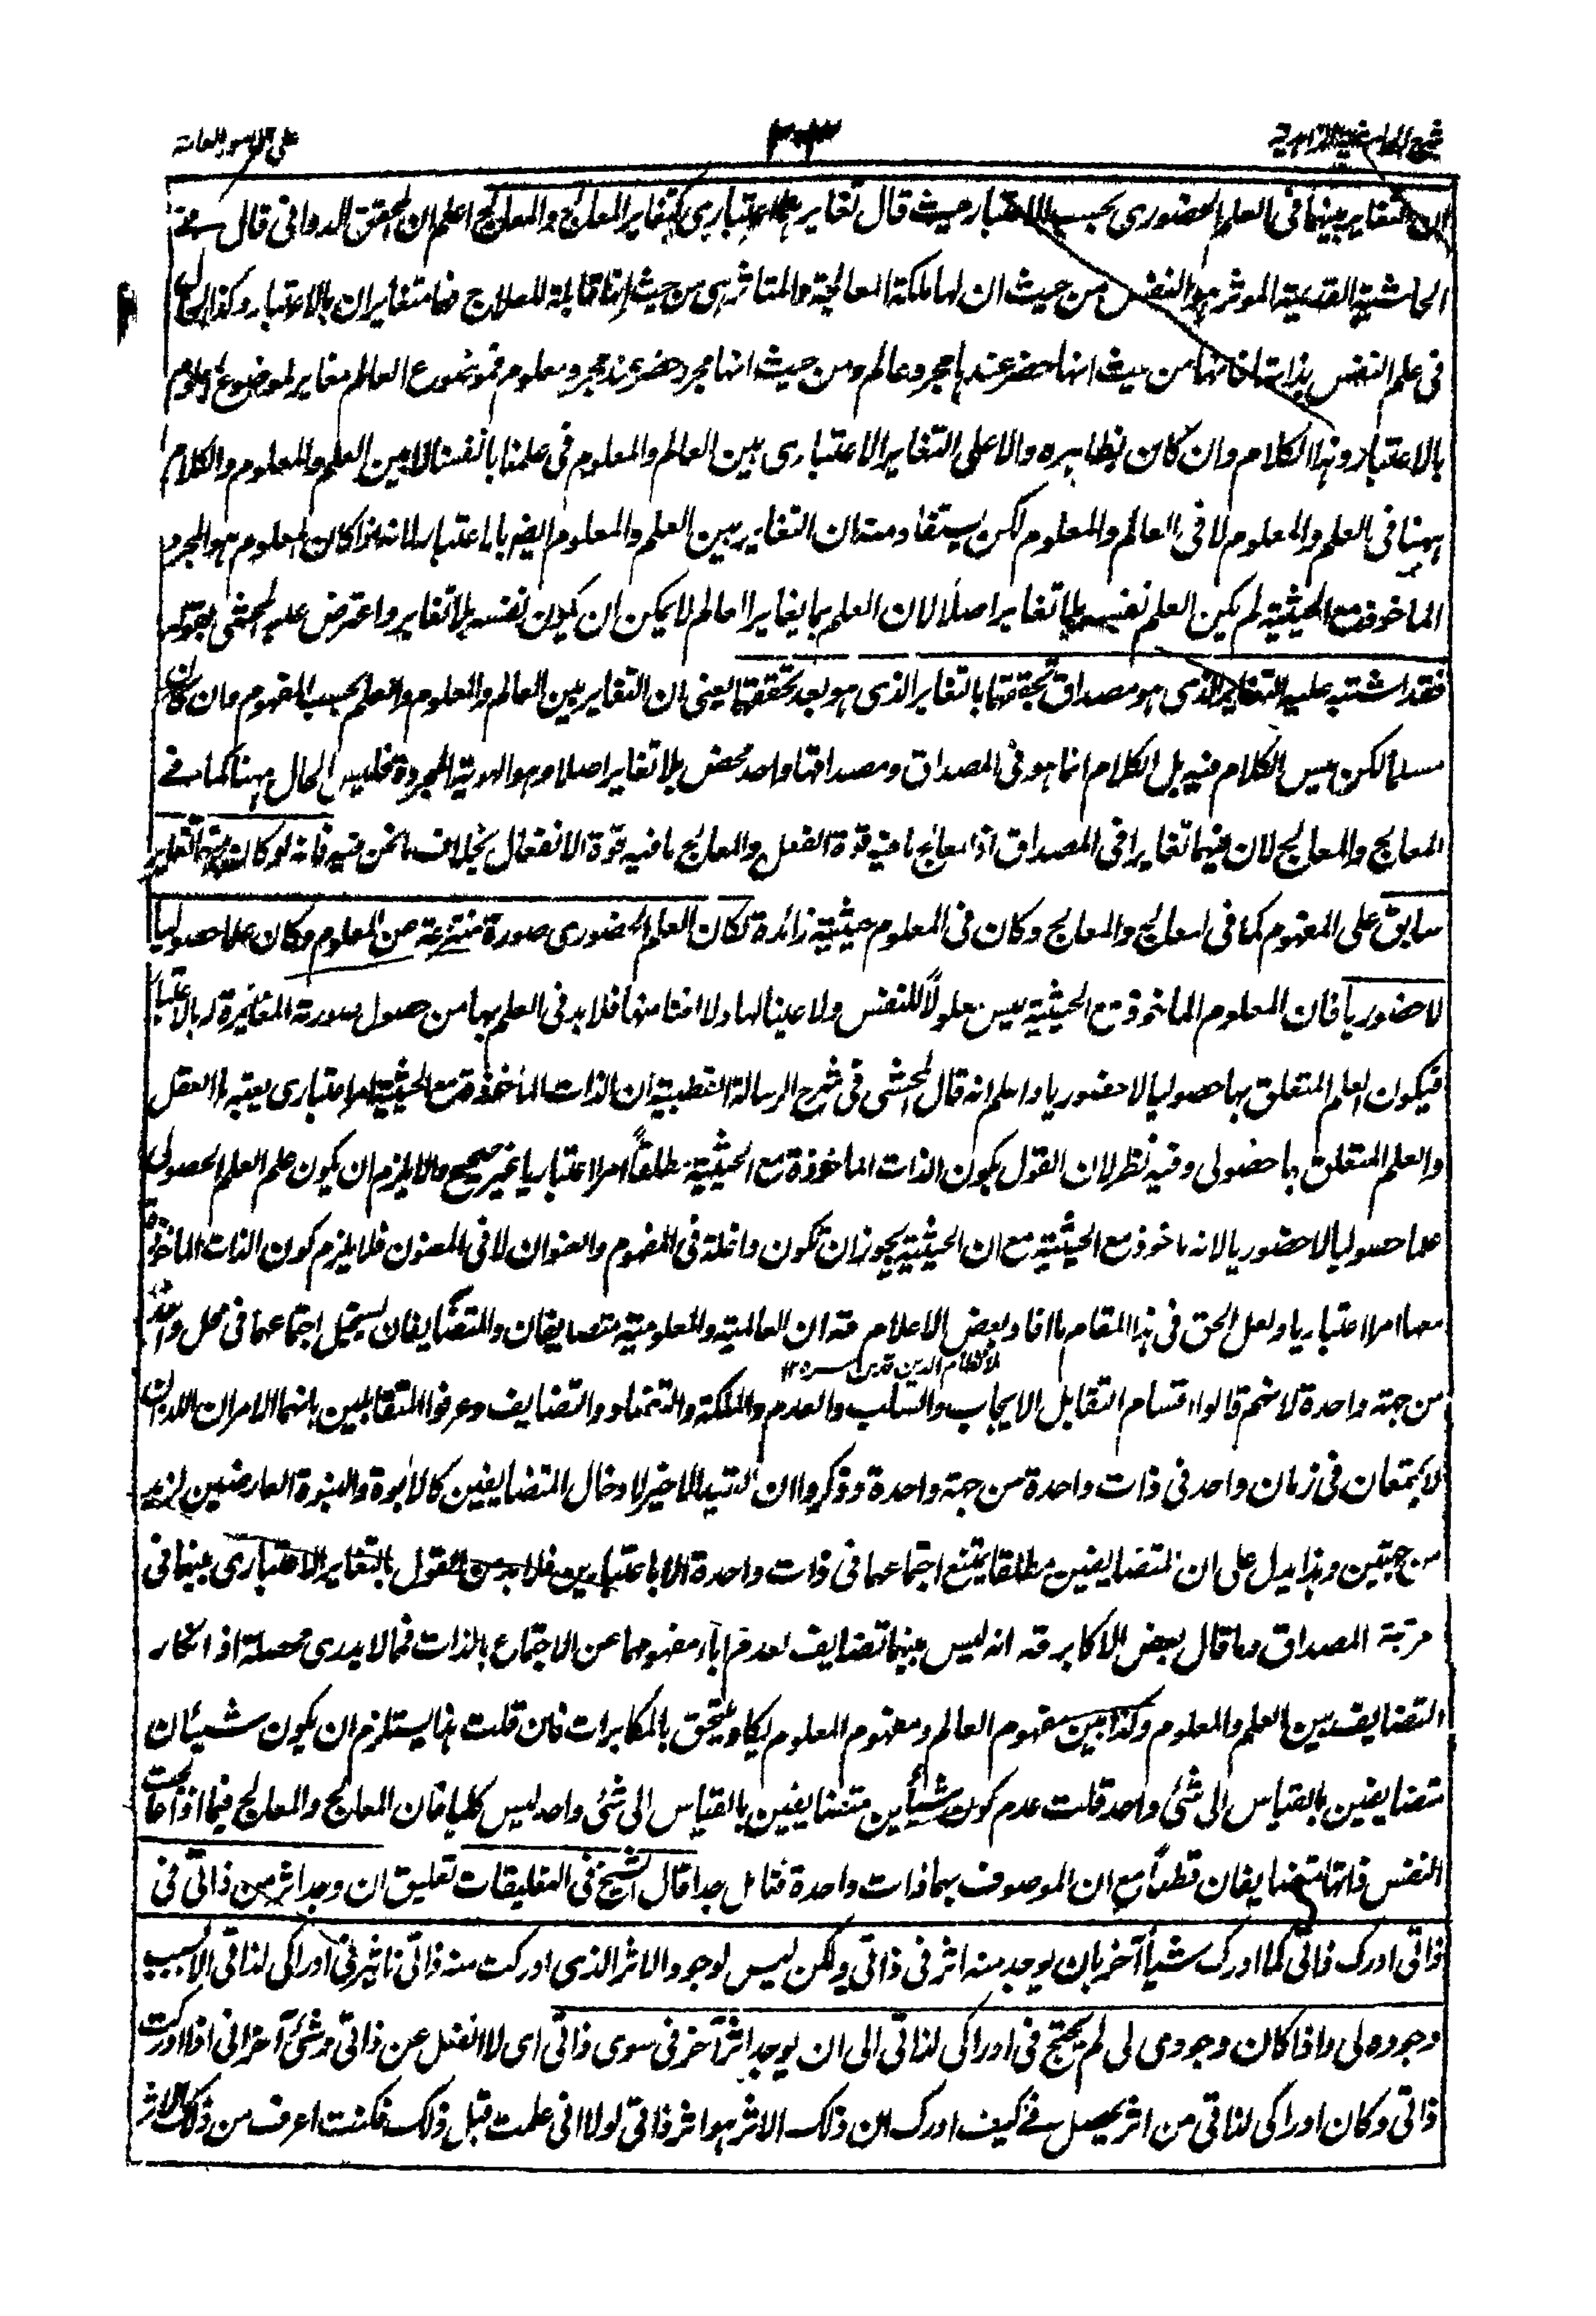 شرح الحاشية الزاهدية
٣٠٣
على الامور العامة
ان التغاير بينهما فى العلم الحضورى بحسب الاعتبار حيث قال تغايرهما اعتبارى كتغاير المعالِج والمعالَج اعلم ان المحقق الدوانى قال فے
الحاشية القديمة الموثر هو النفس من حيث ان لها ملكة المعالجة والمتاثر هى من حيث انها قابلة للعلاج فهما متغايران بالاعتبار وكذا الحال
فى علم النفس بذاتها فانها من حيث انها حضر عندها مجرد عالم ومن حيث انها مجرد حضر عند مجرد معلوم فموضوع العالم مغاير لموضوع المعلوم
بالاعتبار وهذا الكلام وان كان بظاهره دالا على التغاير الاعتبارى بين العالم والمعلوم فى علمنا بانفسنا لا بين العلم والمعلوم والكلام
ههنا فى العلم والمعلوم لا فى العالم والمعلوم لكن يستفاد منه ان التغاير بين العلم والمعلوم ايضه بالاعتبار لانه اذا كان المعلوم هو المجرد
الماخوذ مع الحيثية لم يكن العلم نفسه بلا تغاير اصلا لان العلم بما يغاير العالم لا يمكن ان يكون نفسه بلا تغاير واعترض عليه المحشى بقوله
فقد اشتبه عليه التغاير الذى هو مصداق تحققهما بالتغاير الذى هو بعد تحققهما يعنى ان التغاير بين العالم والمعلوم والعلم بحسب المفهوم وان كان
مسلما لكن ليس الكلام فيه بل الكلام انما هو فى المصداق ومصداقها واحد محض بلا تغاير اصلا وهو الهوية المجردة فليس الحال ههنا كما فے
المعالج والمعالج لان فيهما تغايرا فى المصداق اذ المعالج ما فيه قوة الفعل والمعالج ما فيه قوة الانفعال بخلاف ما نحن فيه فانه لو كان بينهما تغاير
سابق على المفهوم كما فى المعالج والمعالج وكان فى المعلوم حيثية زائدة لكان العلم الحضورى صورة منتزعة من المعلوم وكان علما حصوليا
لا حضوريا فان المعلوم الماخوذ مع الحيثية ليس معلولاً للنفس ولا عينا لها ولا وصفا منضما فلا بد فى العلم بها من حصول صورة المغايرة له بالاعتبار
فيكون العلم المتعلق بها حصوليا لا حضوريا واعلم انه قال المحشى فى شرح الرسالة القطبية ان الذات الماخوذة مع الحيثية امر اعتبارى يعتبره العقل
والعلم المتعلق به حصولى وفيه نظر لان القول بكون الذات الماخوذة مع الحيثية مطلقاً امرا اعتباريا غير صحيح والا يلزم ان يكون علم العلم الحصولى
علما حصوليا لا حضوريا لانه ماخوذ مع الحيثية مع ان الحيثية يجوز ان تكون داخلة فى المفهوم والعنوان لا فى المعنون فلا يلزم كون الذات الماخوذة
معها امرا اعتباريا ولعل الحق فى هذا المقام ما افاد بعض الاعلام قده ان العالمية والمعلومية متضايفان والمتضايفان يستحيل اجتماعهما فى محل واحد
ملا نظام الدين قدس سره ١٢
من جهة واحدة لانهم قالوا اقسام التقابل الايجاب والسلب والعدم والملكة والتضاد والتضايف وعرفوا المتقابلين بانهما الامران اللذان
لا يجتمعان فى زمان واحد فى ذات واحدة من جهة واحدة وذكروا ان القيد الاخير لادخال المتضايفين كالابوة والبنوة العارضين لزيد
من جهتين وهذا يدل على ان المتضايفين مطلقا يمتنع اجتماعهما فى ذات واحدة الا باعتبارين فلا بد من القول بالتغاير الاعتبارى بينهما فى
مرتبة المصداق وما قال بعض الاكابر قده انه ليس بينهما تضايف لعدم اباء مفهومهما عن الاجتماع بالذات فمما لا يدرى محصله اذ انكار
التضايف بين العلم والمعلوم وكذا بين مفهوم العالم ومفهوم المعلوم يكاد يلتحق بالمكابرات فان قلت هذا يستلزم ان يكون شيئان
متضايفين بالقياس الى شئ واحد قلت عدم كون شيئين متضايفين بالقياس الى شئ واحد ليس كليا فان المعالج والمعالج فيما اذا عالجت
النفس ذاتها متضايفان قطعاً مع ان الموصوف بهما ذات واحدة فتامل جدا قال الشيخ فى التعليقات تعليق ان وجد اثر من ذاتى فى
ذاتى ادرك ذاتى كما ادرك شيأ آخر بان يوجد منه اثر فى ذاتى ولكن ليس لوجود الاثر الذى ادركت منه ذاتى تاثير فى ادراكى لذاتى الا بسبب
وجوده لى واذا كان وجودى لى لم يحتج فى ادراكى لذاتى الى ان يوجد اثر آخر فى سوى ذاتى اى لا انفعل عن ذاتى وشئ آخر انى اذا ادركت
ذاتى وكان ادراكى لذاتى من اثر يحصل فے كيف ادرك ان ذلك الاثر هو اثر ذاتى لولا انى علمت قبل ذلك فكنت اعرف من ذلك الاثر